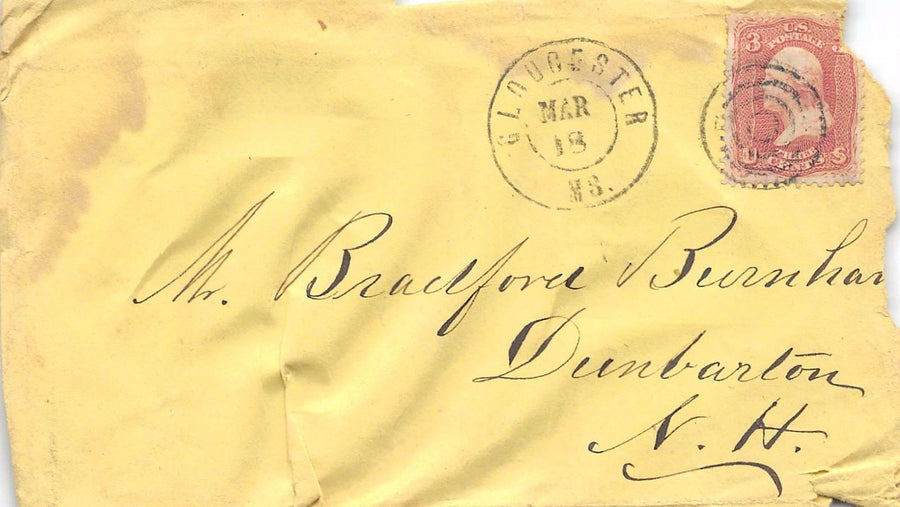 GLOUCESTER
MAR
18
MS.
3
U.S.
POSTAGE
U S
CENTS
Mr. Bradford Burnham
Dunbarton
N. H.